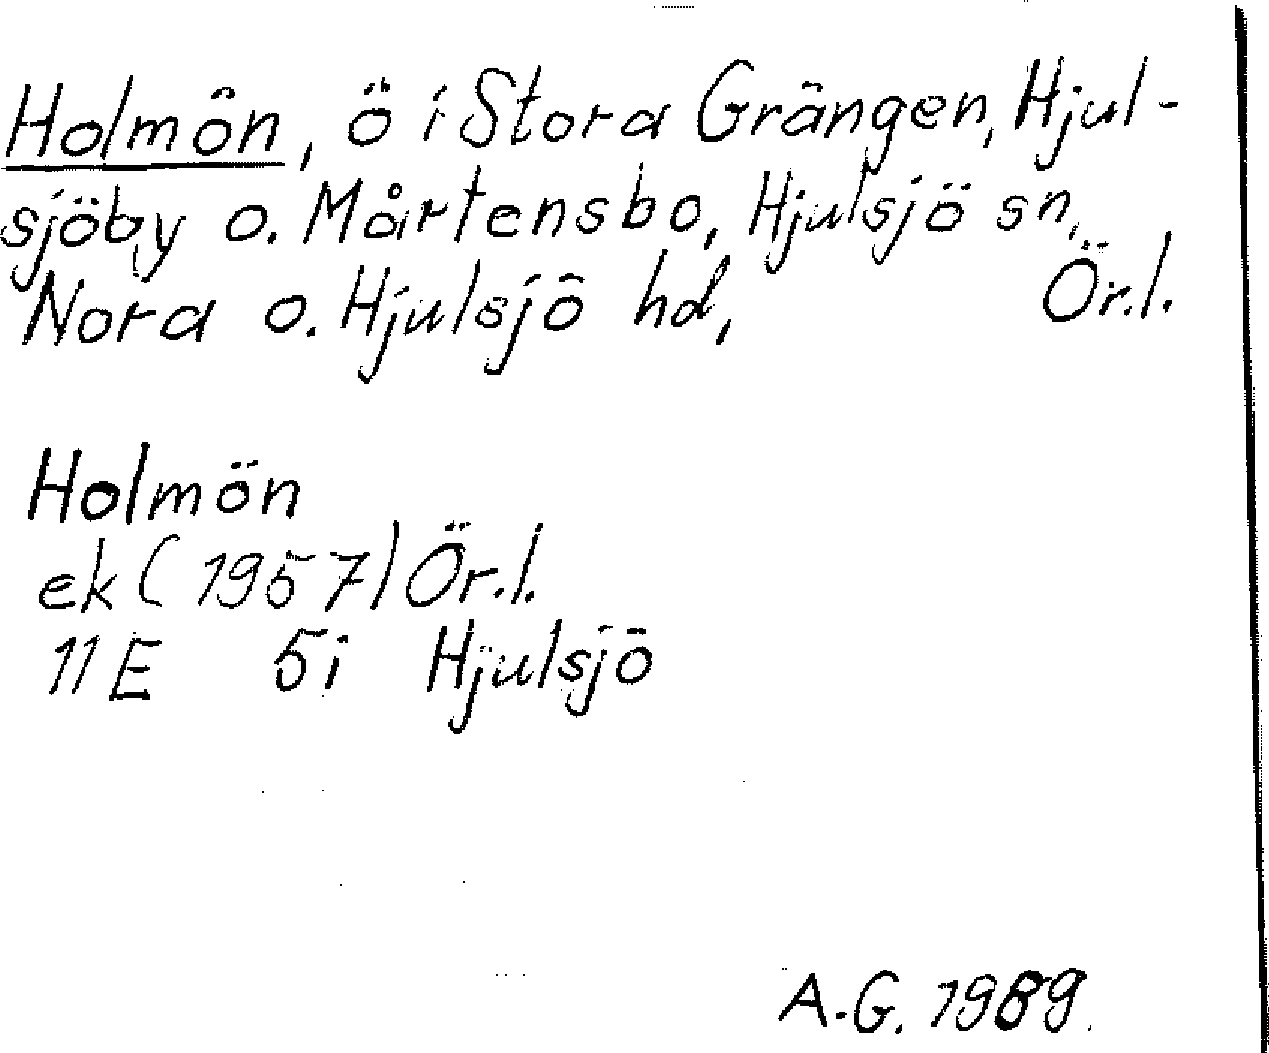 Holmön, ö i Stora Grängen, Hjul-
sjöby o. Mårtensbo, Hjulsjö sn,
Nora o. Hjulsjö hd, Ör.l.
Holmön
ek (1957) Ör.l.
11E 5i Hjulsjö
A.G. 1989.